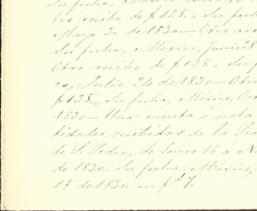 Su fecha,
tro recibo de $125, Su fecha
Mayo 20 de 1830 — Otro
Su fecha, México, junio 28
Otro recibo de $135 — Su
co, Julio 24 de 1830 — Otro
$135, Su fecha, México, Oc
1830 — Una cuenta o nota
tidades recibidas de la
de S. Pedro, de Enero 16 á
de 1830. Su fecha, México,
15 de 1830 — f. 7.